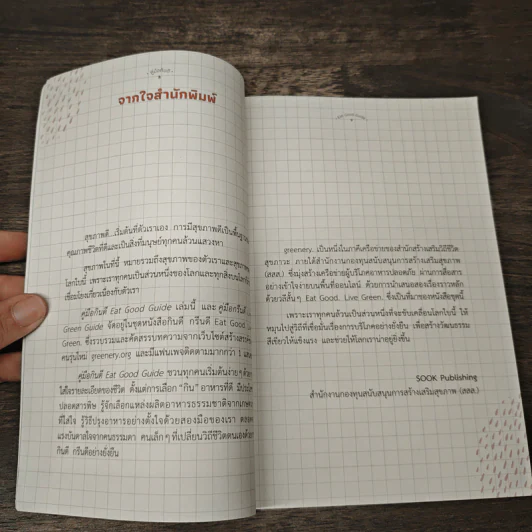 คู่มือกินดี
จากใจสำนักพิมพ์
สุขภาพดี...เริ่มต้นที่ตัวเราเอง การมีสุขภาพดีเป็นพื้นฐาน
คุณภาพชีวิตที่ดีและเป็นสิ่งที่มนุษย์ทุกคนล้วนแสวงหา
สุขภาพในที่นี้ หมายรวมถึงสุขภาพของตัวเราและสุขภาพ
โลกใบนี้ เพราะเราทุกคนเป็นส่วนหนึ่งของโลกและทุกสิ่งบนโลก
เชื่อมโยงเกี่ยวเนื่องกับตัวเรา
คู่มือกินดี Eat Good Guide เล่มนี้ และ คู่มือกรีนดี
Green Guide จัดอยู่ในชุดหนังสือกินดี กรีนดี Eat Good
Green. ซึ่งรวบรวมและคัดสรรบทความจากเว็บไซต์สร้างสรรค์
คนรุ่นใหม่ greenery.org และมีแฟนเพจติดตามมากกว่า 1
คู่มือกินดี Eat Good Guide ชวนทุกคนเริ่มต้นง่ายๆ
ใส่ใจรายละเอียดของชีวิต ตั้งแต่การเลือก “กิน” อาหารที่ดี
ปลอดสารพิษ รู้จักเลือกแหล่งผลิตอาหารธรรมชาติจาก
ที่ใส่ใจ รู้วิธีปรุงอาหารอย่างตั้งใจด้วยสองมือของเรา
แรงบันดาลใจจากคนธรรมดา คนเล็กๆ ที่เปลี่ยนวิถีชีวิตตนเองด้วย
กินดี กรีนดีอย่างยั่งยืน
greenery. เป็นหนึ่งในภาคีเครือข่ายของสำนักสร้างเสริมวิถีชีวิต
สุขภาวะ ภายใต้สำนักงานกองทุนสนับสนุนการสร้างเสริมสุขภาพ
(สสส.) ซึ่งมุ่งสร้างเครือข่ายผู้บริโภคอาหารปลอดภัย ผ่านการสื่อสาร
อย่างเข้าใจง่ายบนพื้นที่ออนไลน์ ด้วยการนำเสนอสองเรื่องราวหลัก
ด้วยวลีสั้นๆ Eat Good. Live Green. ซึ่งเป็นที่มาของหนังสือชุดนี้
เพราะเราทุกคนล้วนเป็นส่วนหนึ่งที่จะขับเคลื่อนโลกใบนี้ ให้
หมุนไปสู่วิถีที่เชื่อมั่นเรื่องการบริโภคอย่างยั่งยืน เพื่อสร้างวัฒนธรรม
สีเขียวให้แข็งแรง และช่วยให้โลกเราน่าอยู่ยิ่งขึ้น
SOOK Publishing
สำนักงานกองทุนสนับสนุนการสร้างเสริมสุขภาพ (สสส.)